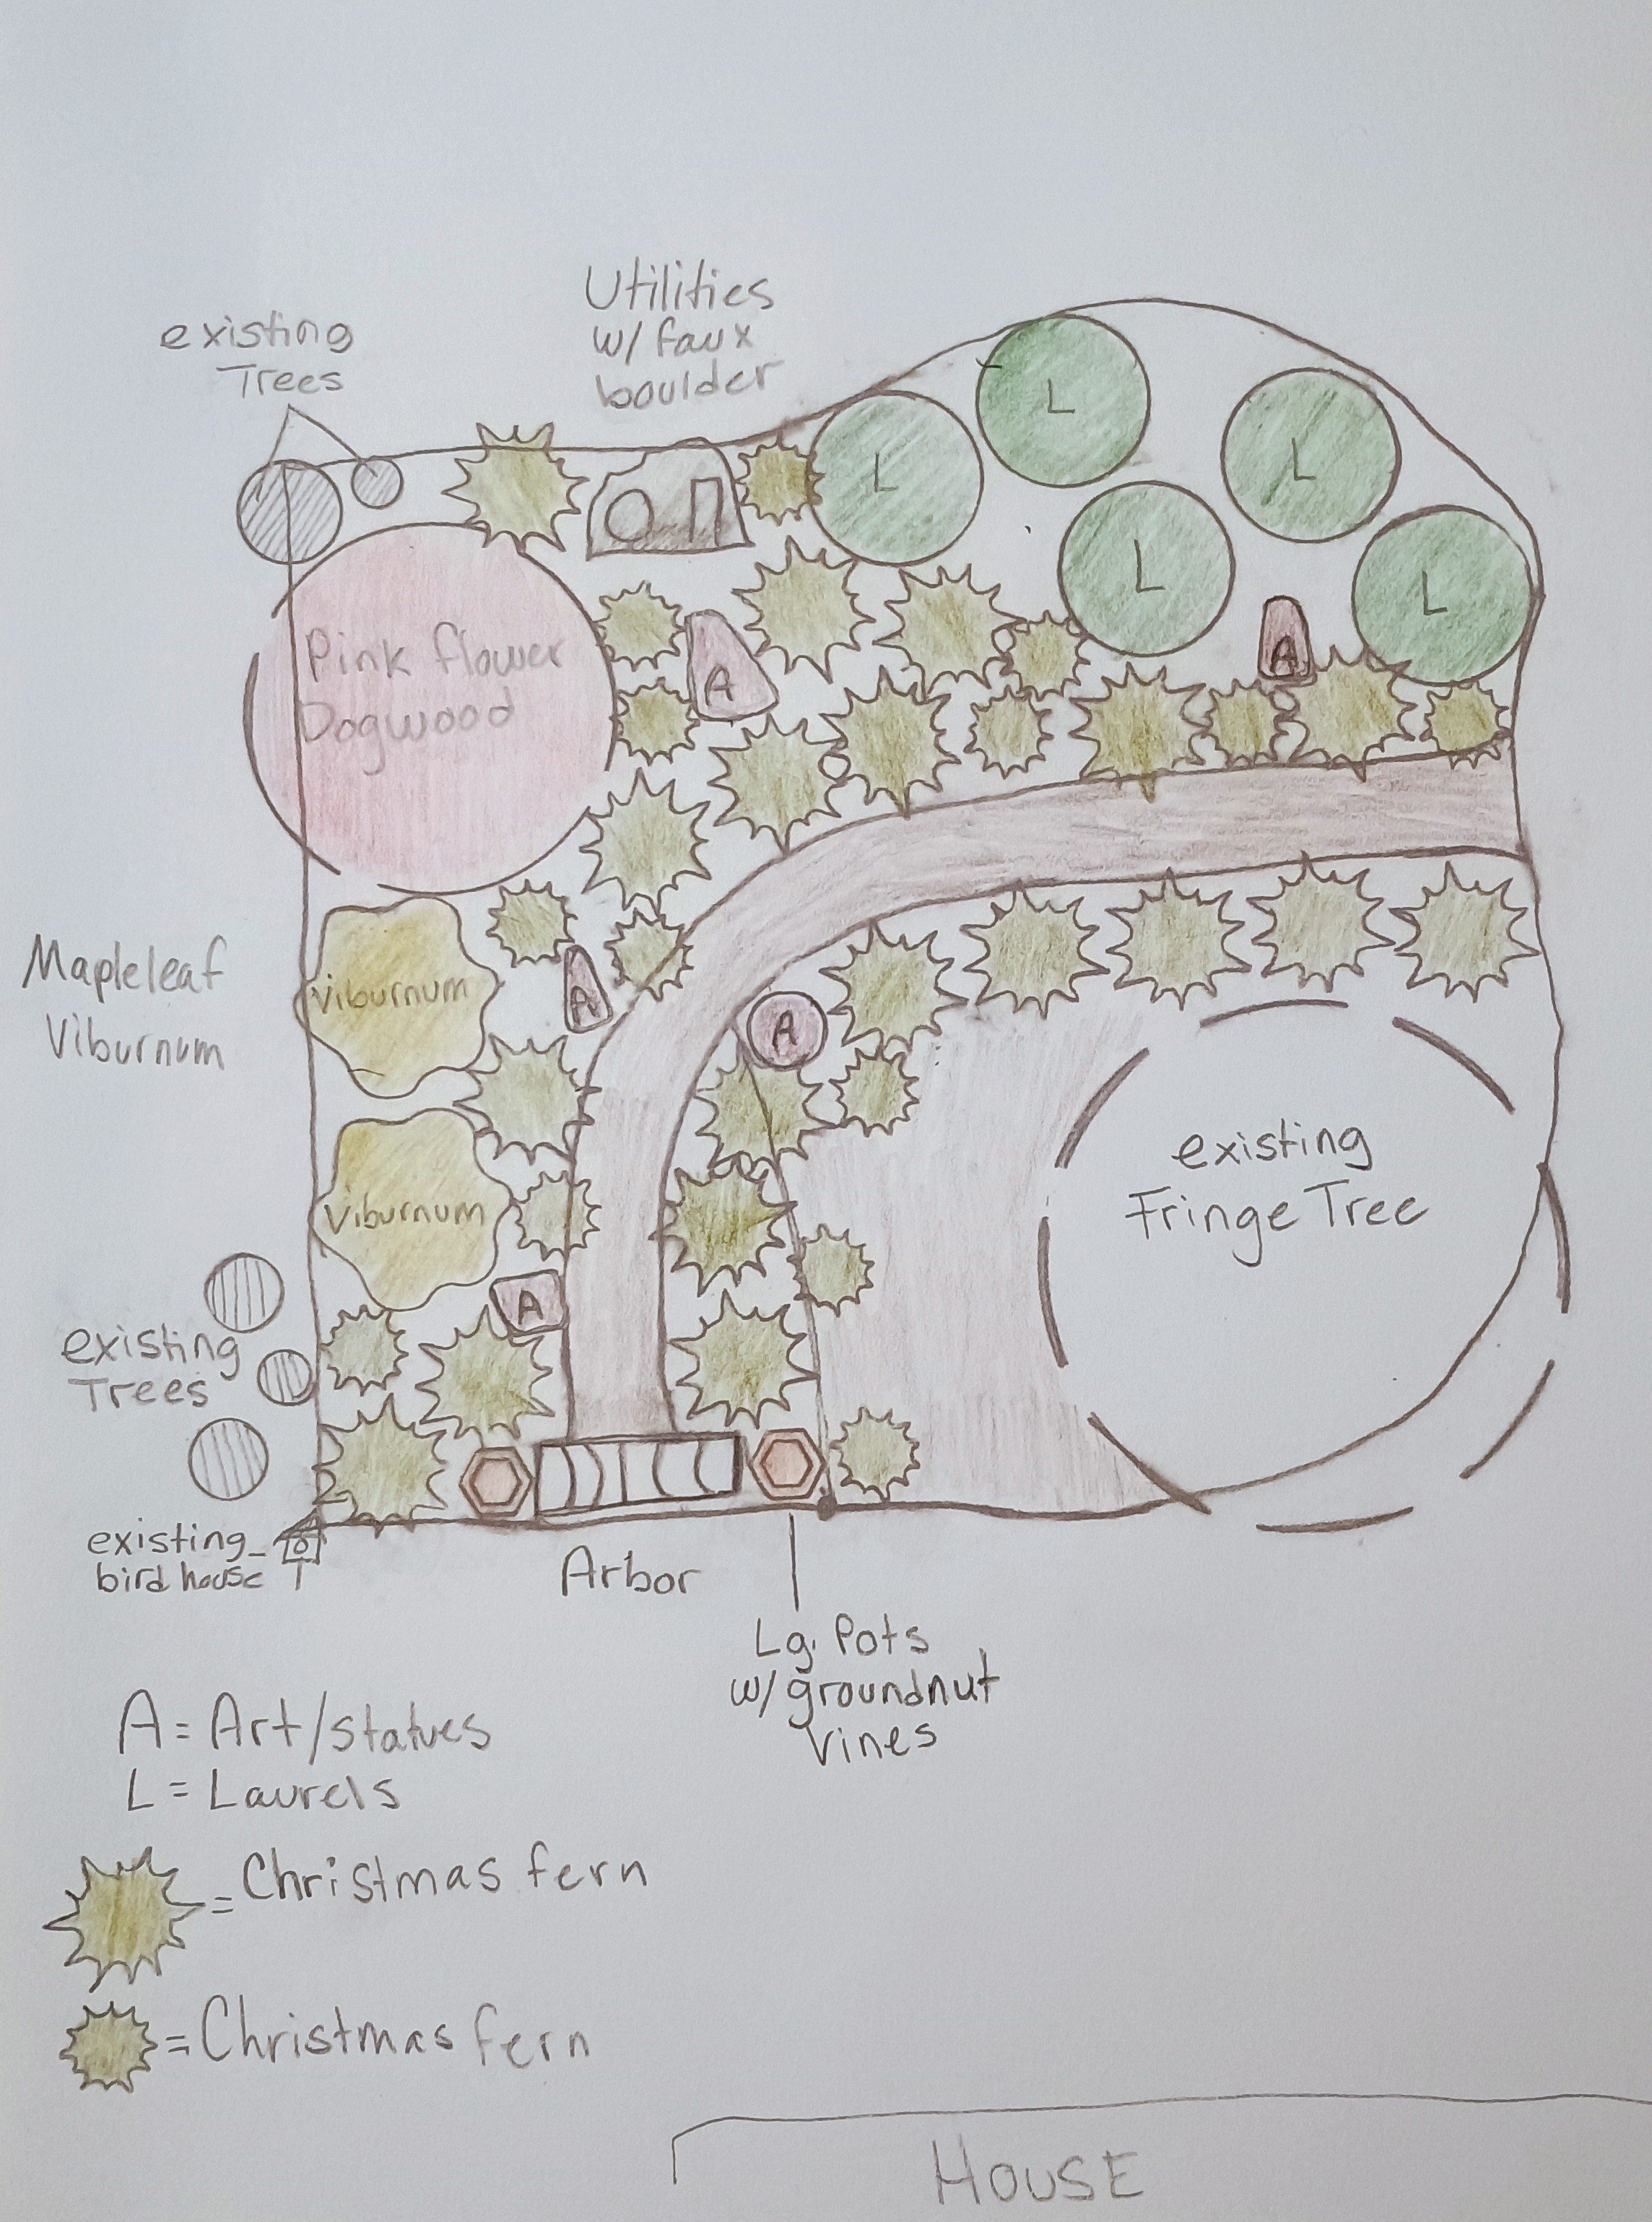 Utilities
w/ faux
boulder
existing
Trees
L
L
L
L
L
Pink flower
Dogwood
A
A
Mapleleaf
Viburnum
Viburnum
A
A
existing
Fringe Tree
Viburnum
A
existing
Trees
existing
bird house
Arbor
Lg. Pots
w/ groundnut
vines
A = Art/statues
L = Laurels
= Christmas fern
= Christmas fern
HOUSE